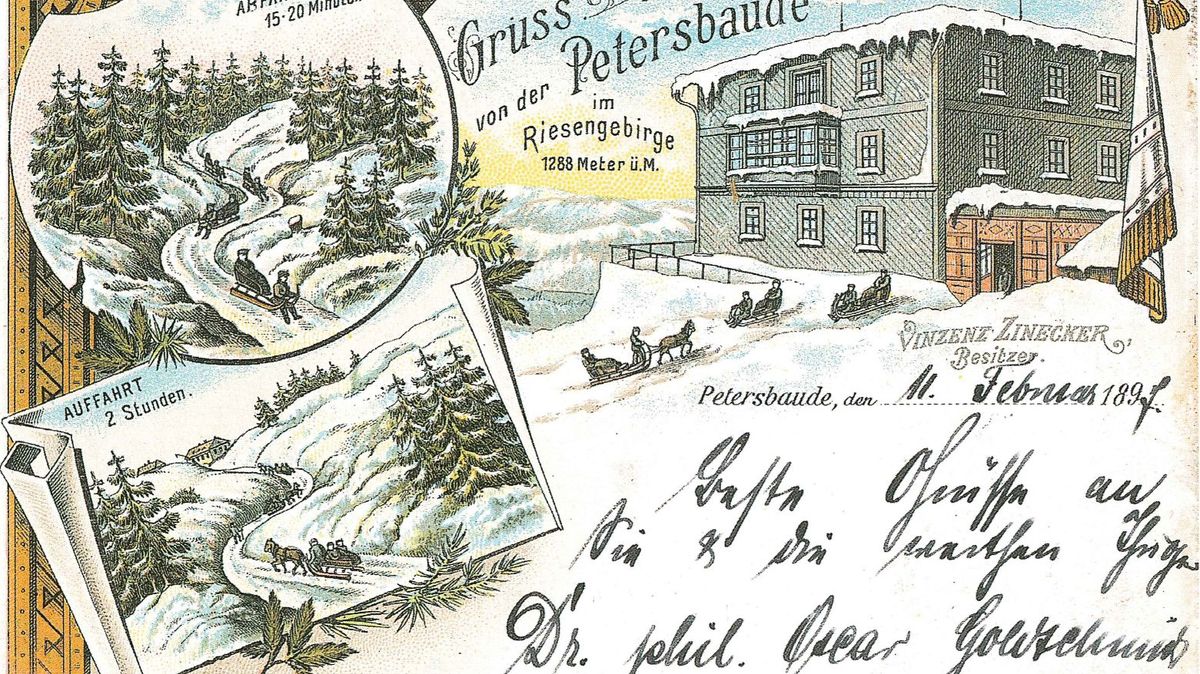 ABFAHRT
15-20 Minuten.
Gruss
von der Petersbaude
im
Riesengebirge
1288 Meter ü.M.
AUFFAHRT
2 Stunden.
VINZENZ ZINECKER,
Besitzer.
Petersbaude, den 11. Februar 1897.
Beste Grüsse an
Sie & die werthen
Dr. phil. Oscar Goldschmidt